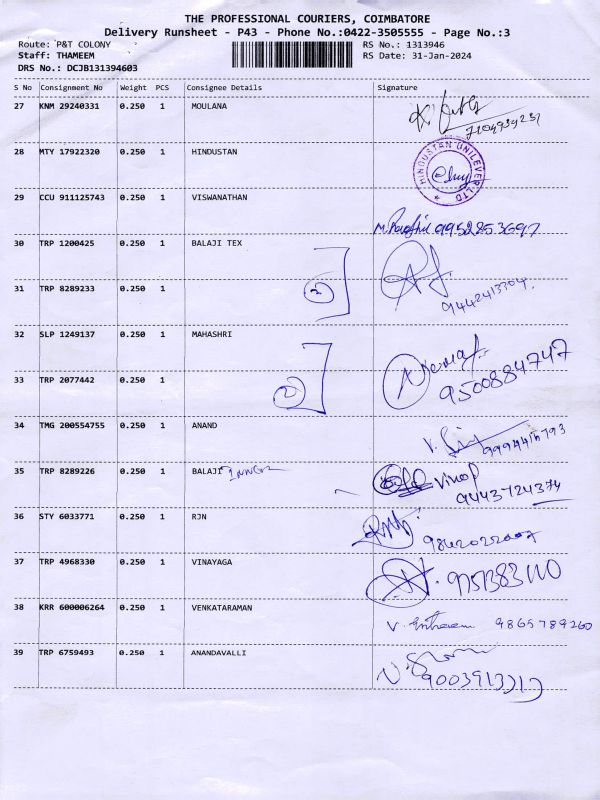 THE PROFESSIONAL COURIERS, COIMBATORE
Delivery Runsheet - P43 - Phone No.:0422-3505555 - Page No.:3
Route: P&T COLONY RS No.: 1313946
Staff: THAMEEM RS Date: 31-Jan-2024
DRS No.: DCJB131394603
S No Consignment No Weight PCS Consignee Details Signature
27 KNM 29240331 0.250 1 MOULANA
28 MTY 17922320 0.250 1 HINDUSTAN HINDUSTAN UNILEVER LTD
29 CCU 911125743 0.250 1 VISWANATHAN 9952853697
30 TRP 1200425 0.250 1 BALAJI TEX
31 TRP 8289233 0.250 1 2 9442413304
32 SLP 1249137 0.250 1 MAHASHRI
33 TRP 2077442 0.250 1 2 9500884747
34 TMG 200554755 0.250 1 ANAND
35 TRP 8289226 0.250 1 BALAJI INNER Vinop
9443724374
36 STY 6033771 0.250 1 RJN 9842022007
37 TRP 4968330 0.250 1 VINAYAGA
38 KRR 600006264 0.250 1 VENKATARAMAN 9865789260
39 TRP 6759493 0.250 1 ANANDAVALLI